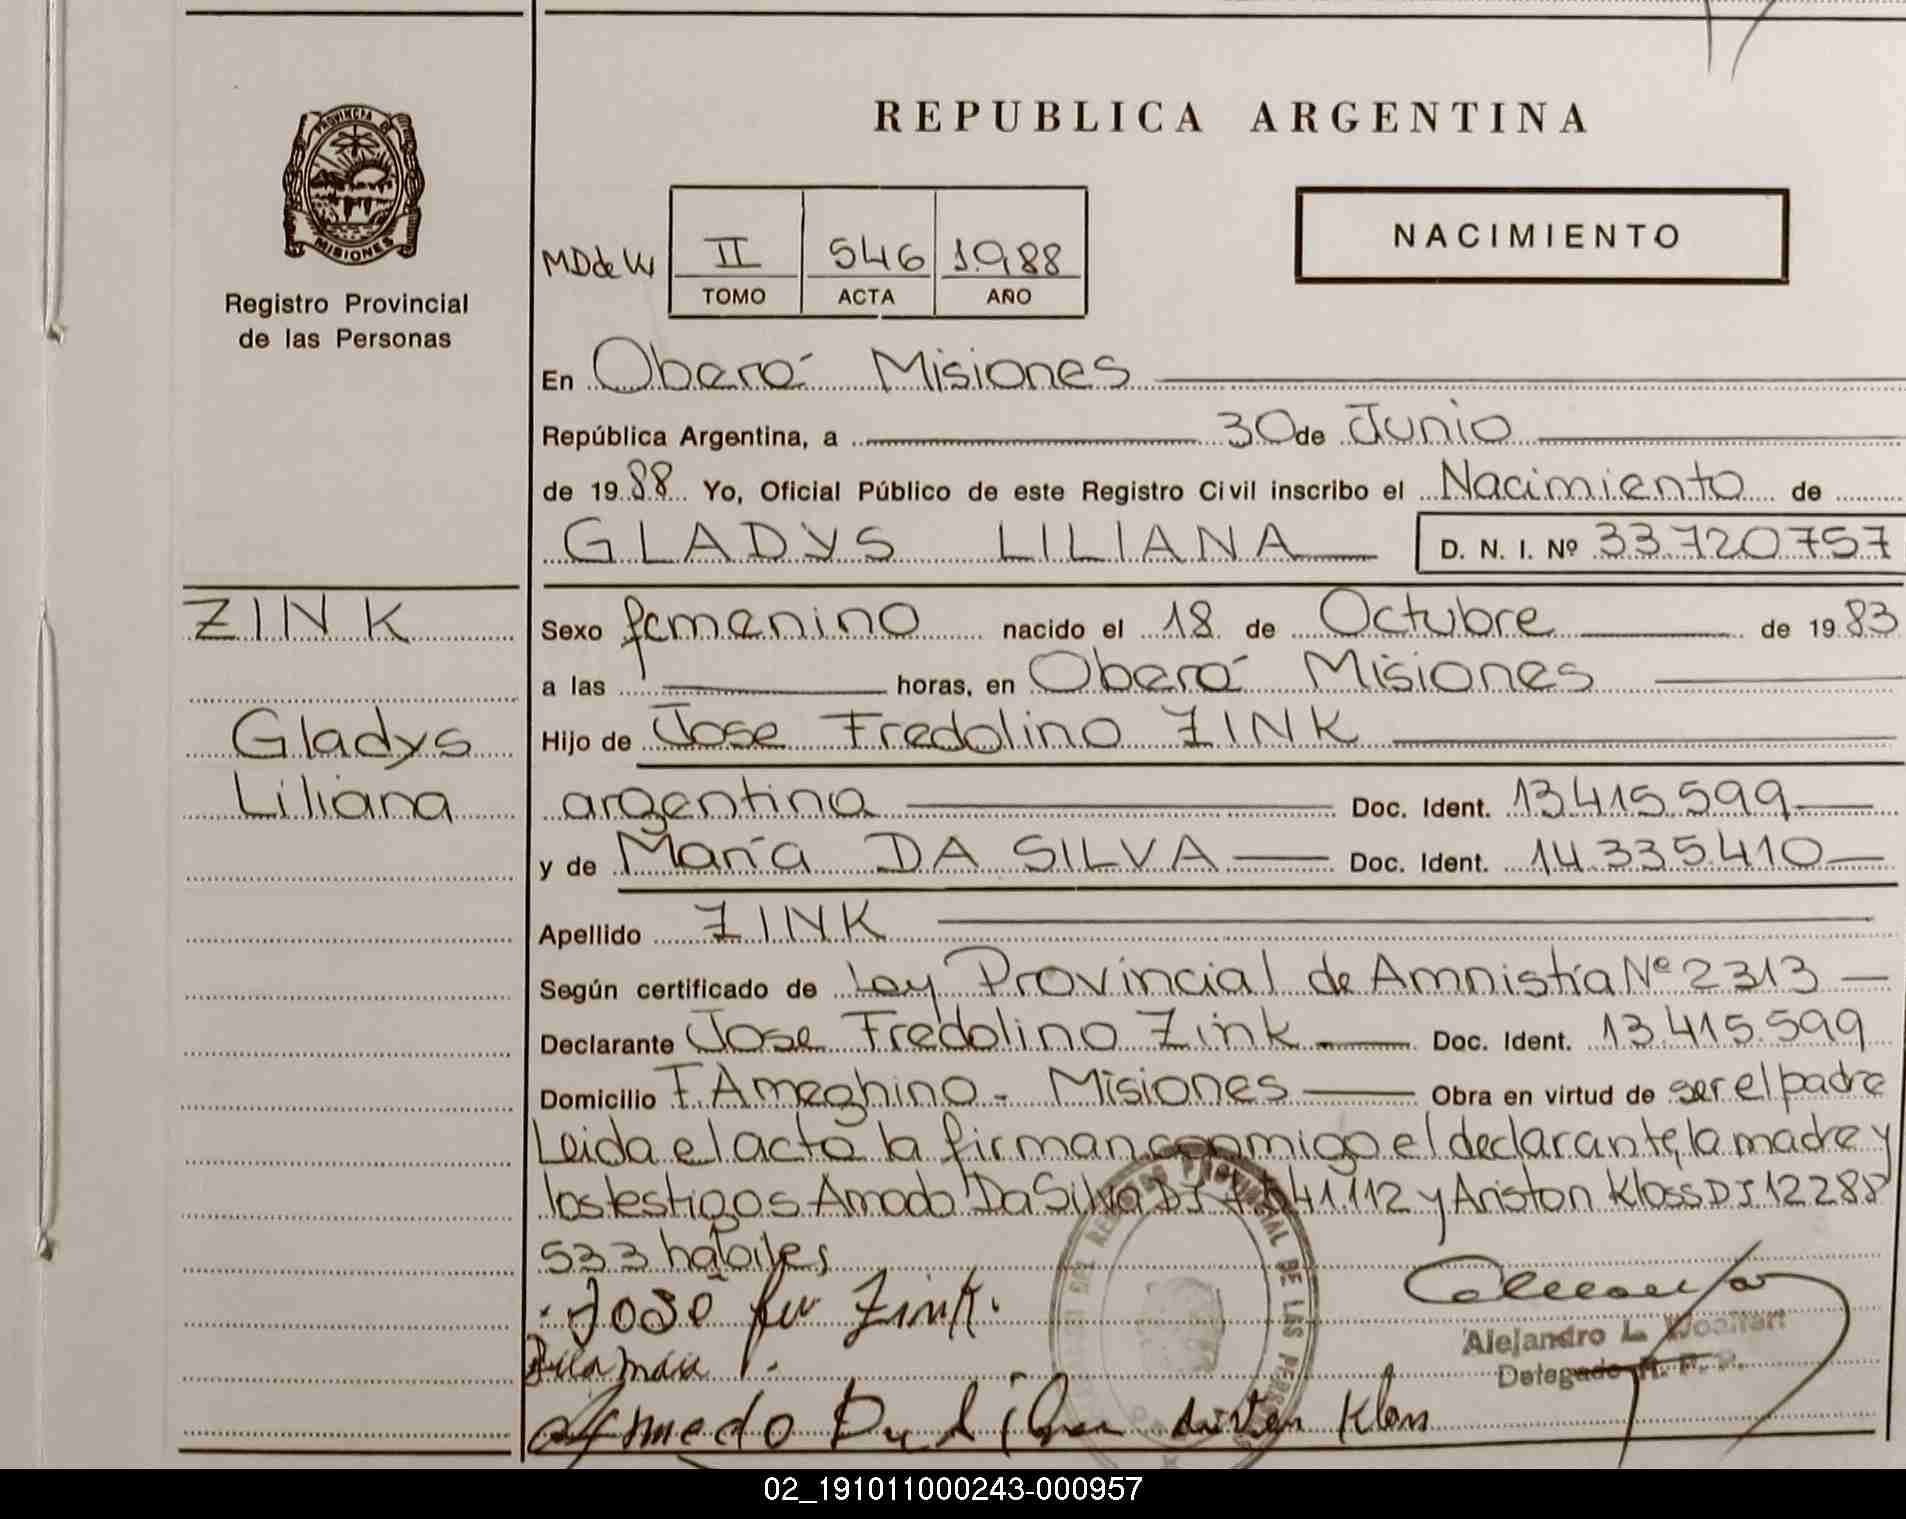 PROVINCIA DE
MISIONES
Registro Provincial
de las Personas
REPUBLICA ARGENTINA
MD de W
II 546 1.988
TOMO ACTA AÑO
NACIMIENTO
En Oberá Misiones
República Argentina, a 30 de Junio
de 1988 Yo, Oficial Público de este Registro Civil inscribo el Nacimiento de
GLADYS LILIANA D. N. I. Nº 33720757
ZINK
Gladys
Liliana
Sexo femenino nacido el 18 de Octubre de 1983
a las horas, en Oberá Misiones
Hijo de Jose Fredolino ZINK
argentina Doc. Ident. 13.415.599
y de María DA SILVA Doc. Ident. 14.335.410
Apellido ZINK
Según certificado de Ley Provincial de Amnistía Nº 2313
Declarante Jose Fredolino Zink Doc. Ident. 13.415.599
Domicilio F. Ameghino - Misiones Obra en virtud de ser el padre
Leida el acta la firman conmigo el declarante, la madre y
los testigos Amado Da Silva DI 41.112 y Ariston Kloss DI 12288
533 habiles
José Zink.
Alejandro L.
Delegado R. P. P.
Da Silva Kloss
REGISTRO PROVINCIAL DE LAS
02_191011000243-000957